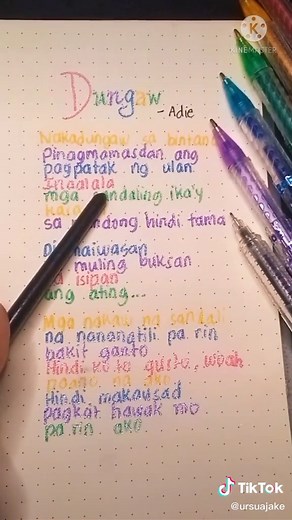 KINEMASTER
Dungaw
- Adie
Nakadungaw sa bintana
Pinagmamasdan ang
pagpatak ng ulan
Inaalala
mga sandaling ika'y
kasa
sa mundong hindi tama
Di maiwasan
muling buksan
sa isipan
ang ating...
Mga nakaw na sandali
na nananatili pa rin
bakit ganto
Hindi ko to gusto, woah
paano na ako
Hindi makausad
pagkat hawak mo
pa rin ako
TikTok
@ursuajake